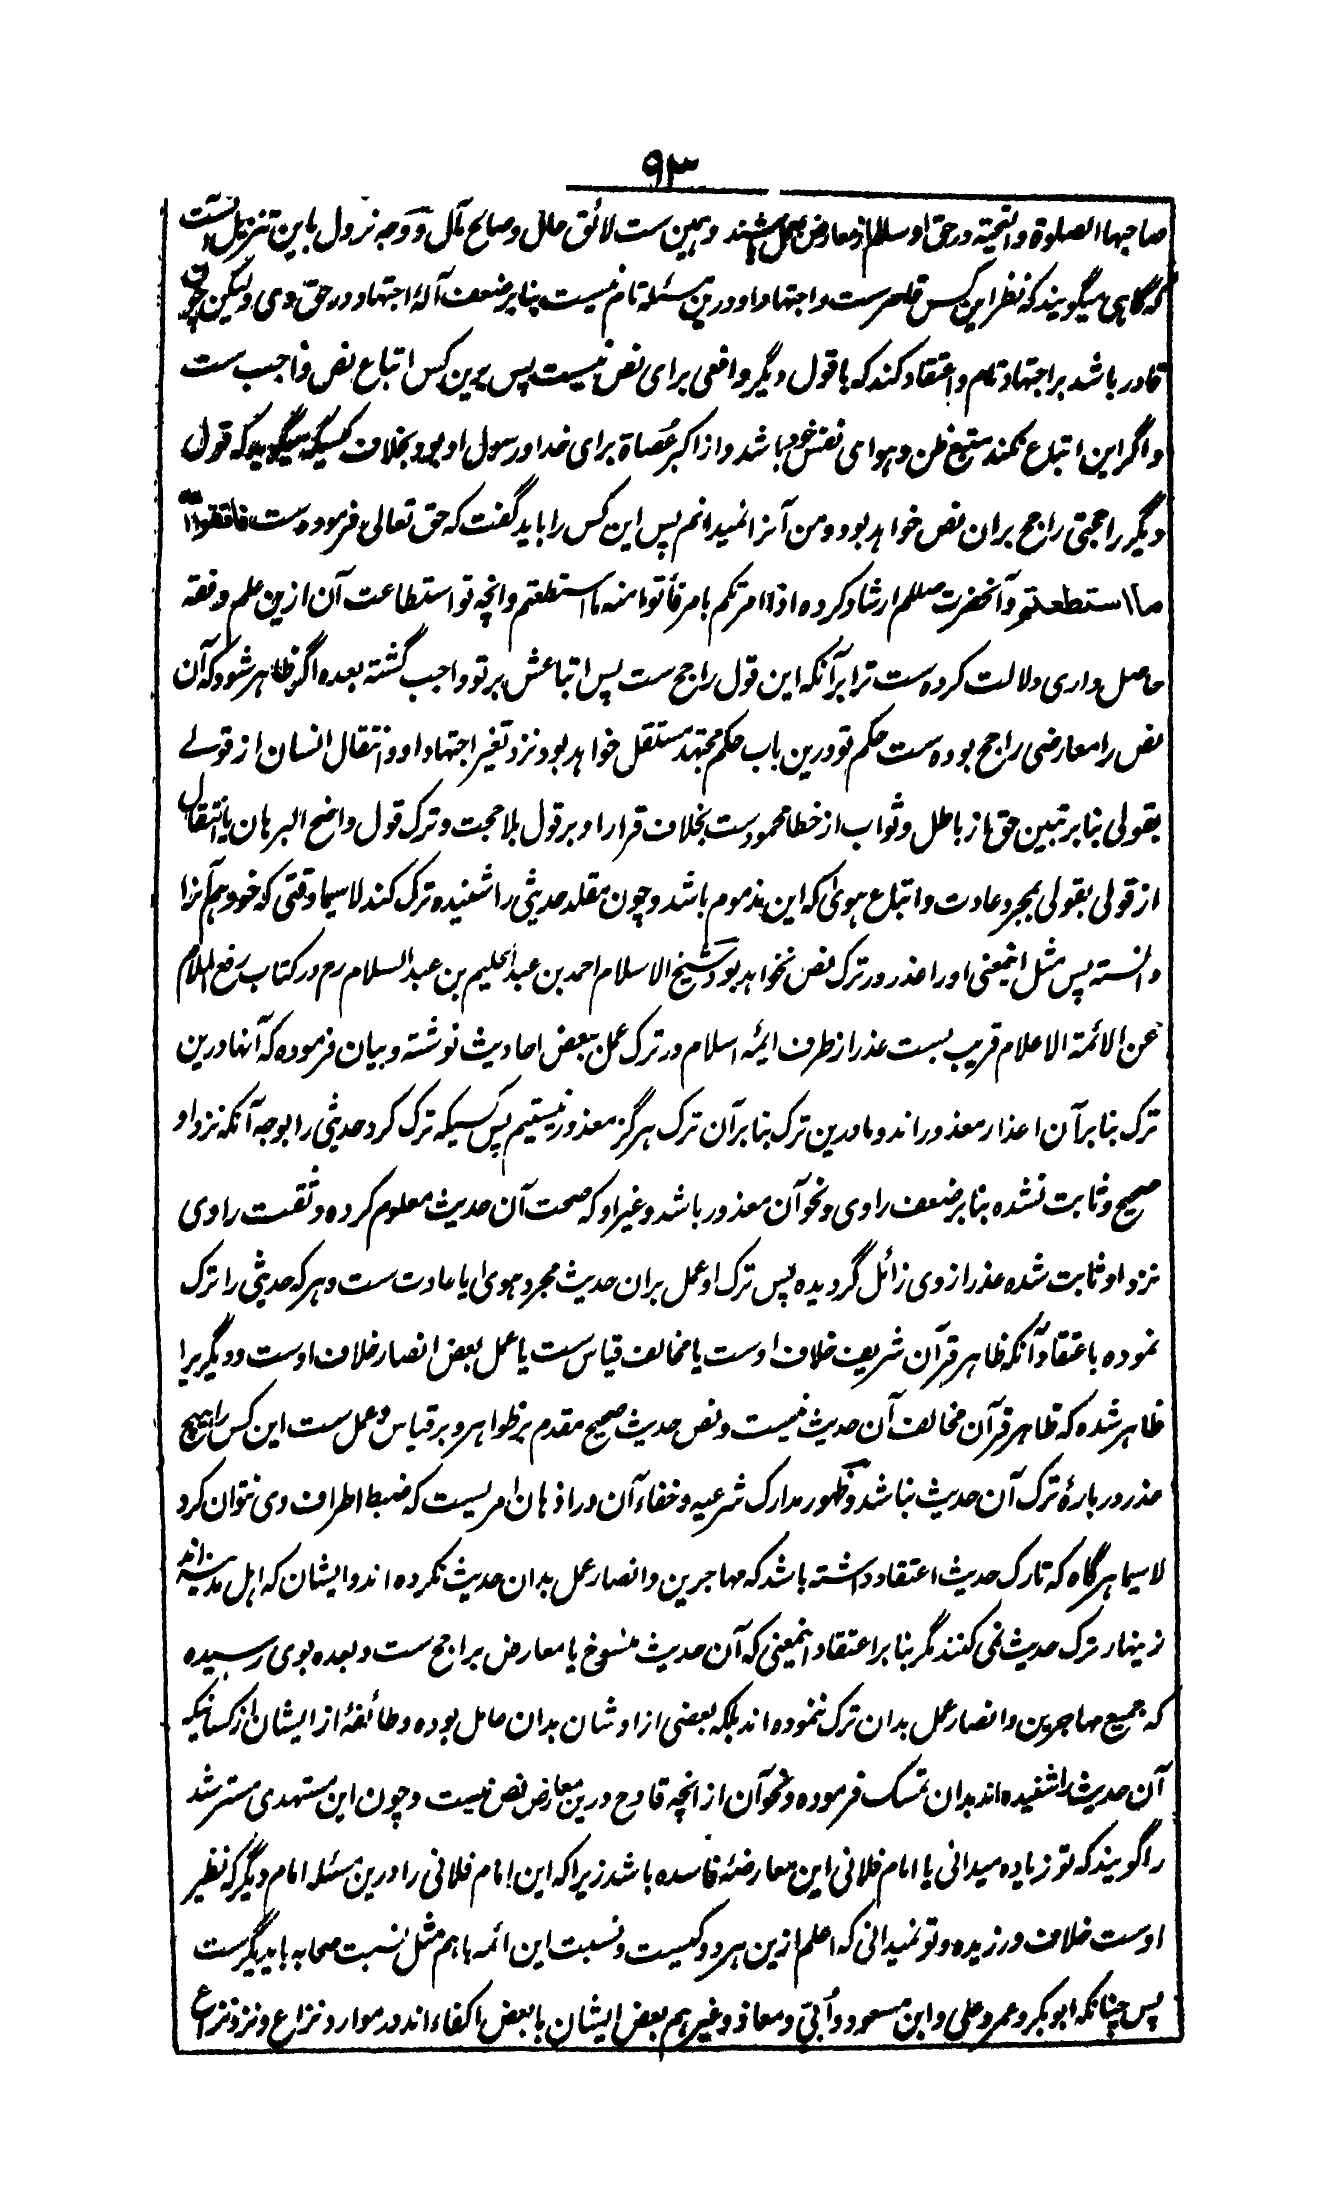 ۹۳
صاحبها الصلوة والتحیته در حق او سلم از معارض عمل باشند و همین ست لائق حال و صالح مآل و وجه نزول باین تنزیل آنست
که گاهی میگویند که نظر این کس قاصر ست و اجتهاد او درین مسئله تام نیست بنا بر ضعف آلهٔ اجتهاد در حق وی ولیکن چون
قادر باشد بر اجتهاد تام و اعتقاد کند که با قول دیگر دافعی برای نص نیست پس برین کس اتباع نص واجب ست
و اگر این اتباع نکند متبع ظن و هوای نفس خود باشد و از اکبر عُصاة برای خدا و رسول او بود بخلاف کسیکه میگوید که قول
دیگر را حجتی راجح بران نص خواهد بود و من آنرا نمیدانم پس این کس را باید گفت که حق تعالی فرموده ست فاتقوا الله
ما استطعتم و آنحضرت صللم ارشاد کرده اذا امرتکم بامر فأتوا منه ما استطعتم و انچه تو استطاعت آن ازین علم و فقه
حاصل داری دلالت کرده ست ترا بر آنکه این قول راجح ست پس اتباعش بر تو واجب گشته بعده اگر ظاهر شود که آن
نص را معارضی راجح بوده ست حکم تو درین باب حکم مجتهد مستقل خواهد بود نزد تغیر اجتهاد او و انتقال انسان از قولے
بقولی بنا بر تبین حق از باطل و ثواب از خطا محمود ست بخلاف قرار او بر قول بلا حجت و ترک قول واضح البرهان یا انتقال
از قولی بقولی بمجرد عادت و اتباع هوی که این مذموم باشد و چون مقلد حدیثی را شنیده ترک کند لاسیما وقتی که خود هم آنرا
دانسته پس مثل اینمعنی او را عذر در ترک نص نخواهد بود و شیخ الاسلام احمد بن عبد الحلیم بن عبد السلام رح در کتاب رفع الملام
عن الائمة الاعلام قریب بست عذر از طرف ایمٔه اسلام در ترک عمل ببعض احادیث نوشته و بیان فرموده که آنها درین
ترک بنا بر آن اعذار معذور اند و ما درین ترک بنا بر آن ترک هرگز معذور نیستیم پس کسیکه ترک کرد حدیثی را بوجه آنکه نزد او
صحیح و ثابت نشده بنا بر ضعف راوی و نحو آن معذور باشد و غیر او که صحت آن حدیث معلوم کرده و ثقت راوی
نزد او ثابت شده عذر از وی زائل گردیده پس ترک او عمل بران حدیث مجرد هوی یا عادت ست و هر که حدیثی را ترک
نموده باعتقاد آنکه ظاهر قرآن شریف خلاف اوست یا مخالف قیاس ست یا عمل بعض انصار خلاف اوست و دیگریرا
ظاهر شده که ظاهر قرآن مخالف آن حدیث نیست و نص حدیث صحیح مقدم بر ظواهر و بر قیاس و عمل ست این کس را هیچ
عذر دربارهٔ ترک آن حدیث نباشد و ظهور مدارک شرعیه و خفاء آن در اذهان امریست که ضبط اطراف وی نتوان کرد
لاسیما هرگاه که تارک حدیث اعتقاد داشته باشد که مهاجرین و انصار عمل بدان حدیث نکرده اند و ایشان که اهل مدینه اند
زینهار ترک حدیث نمی کنند مگر بنا بر اعتقاد اینمعنی که آن حدیث منسوخ یا معارض براجح ست و بعده بوی رسیده
که جمیع مهاجرین و انصار عمل بدان ترک ننموده اند بلکه بعضی از اوشان بدان عامل بوده و طائفهٔ از ایشان از کسانیکه
آن حدیث را شنیده اند بدان تمسک فرموده و نحو آن از انچه قادح درین معارض نص نیست و چون این مستهدی مسترشد
را گویند که تو زیاده میدانی یا امام فلانی این معارضهٔ فاسده باشد زیرا که این امام فلانی را درین مسئله امام دیگر که نظیر
اوست خلاف ورزیده و تو نمیدانی که اعلم ازین هر دو کیست و نسبت این ائمه باهم مثل نسبت صحابه بایدیگر ست
پس چنانکه ابوبکر و عمر و علی و ابن مسعود و أبیّ و معاذ و غیرهم بعض ایشان با بعض اکفاء اند در موارد نزاع و نزد نزاع